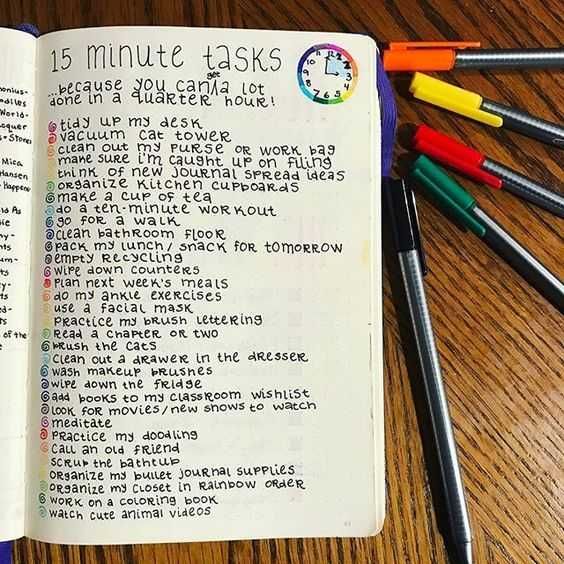 15 minute tasks
...because you can get a lot
done in a quarter hour!
tidy up my desk
vacuum cat tower
clean out my purse or work bag
make sure i'm caught up on filing
think of new journal spread ideas
organize kitchen cupboards
make a cup of tea
do a ten-minute workout
go for a walk
clean bathroom floor
pack my lunch/snack for tomorrow
empty recycling
wipe down counters
plan next week's meals
do my ankle exercises
use a facial mask
practice my brush lettering
read a chapter or two
brush the cats
clean out a drawer in the dresser
wash makeup brushes
wipe down the fridge
add books to my classroom wishlist
look for movies/new shows to watch
meditate
practice my doodling
call an old friend
scrub the bathtub
organize my bullet journal supplies
organize my closet in rainbow order
work on a coloring book
watch cute animal videos
Mica
Hansen
of the